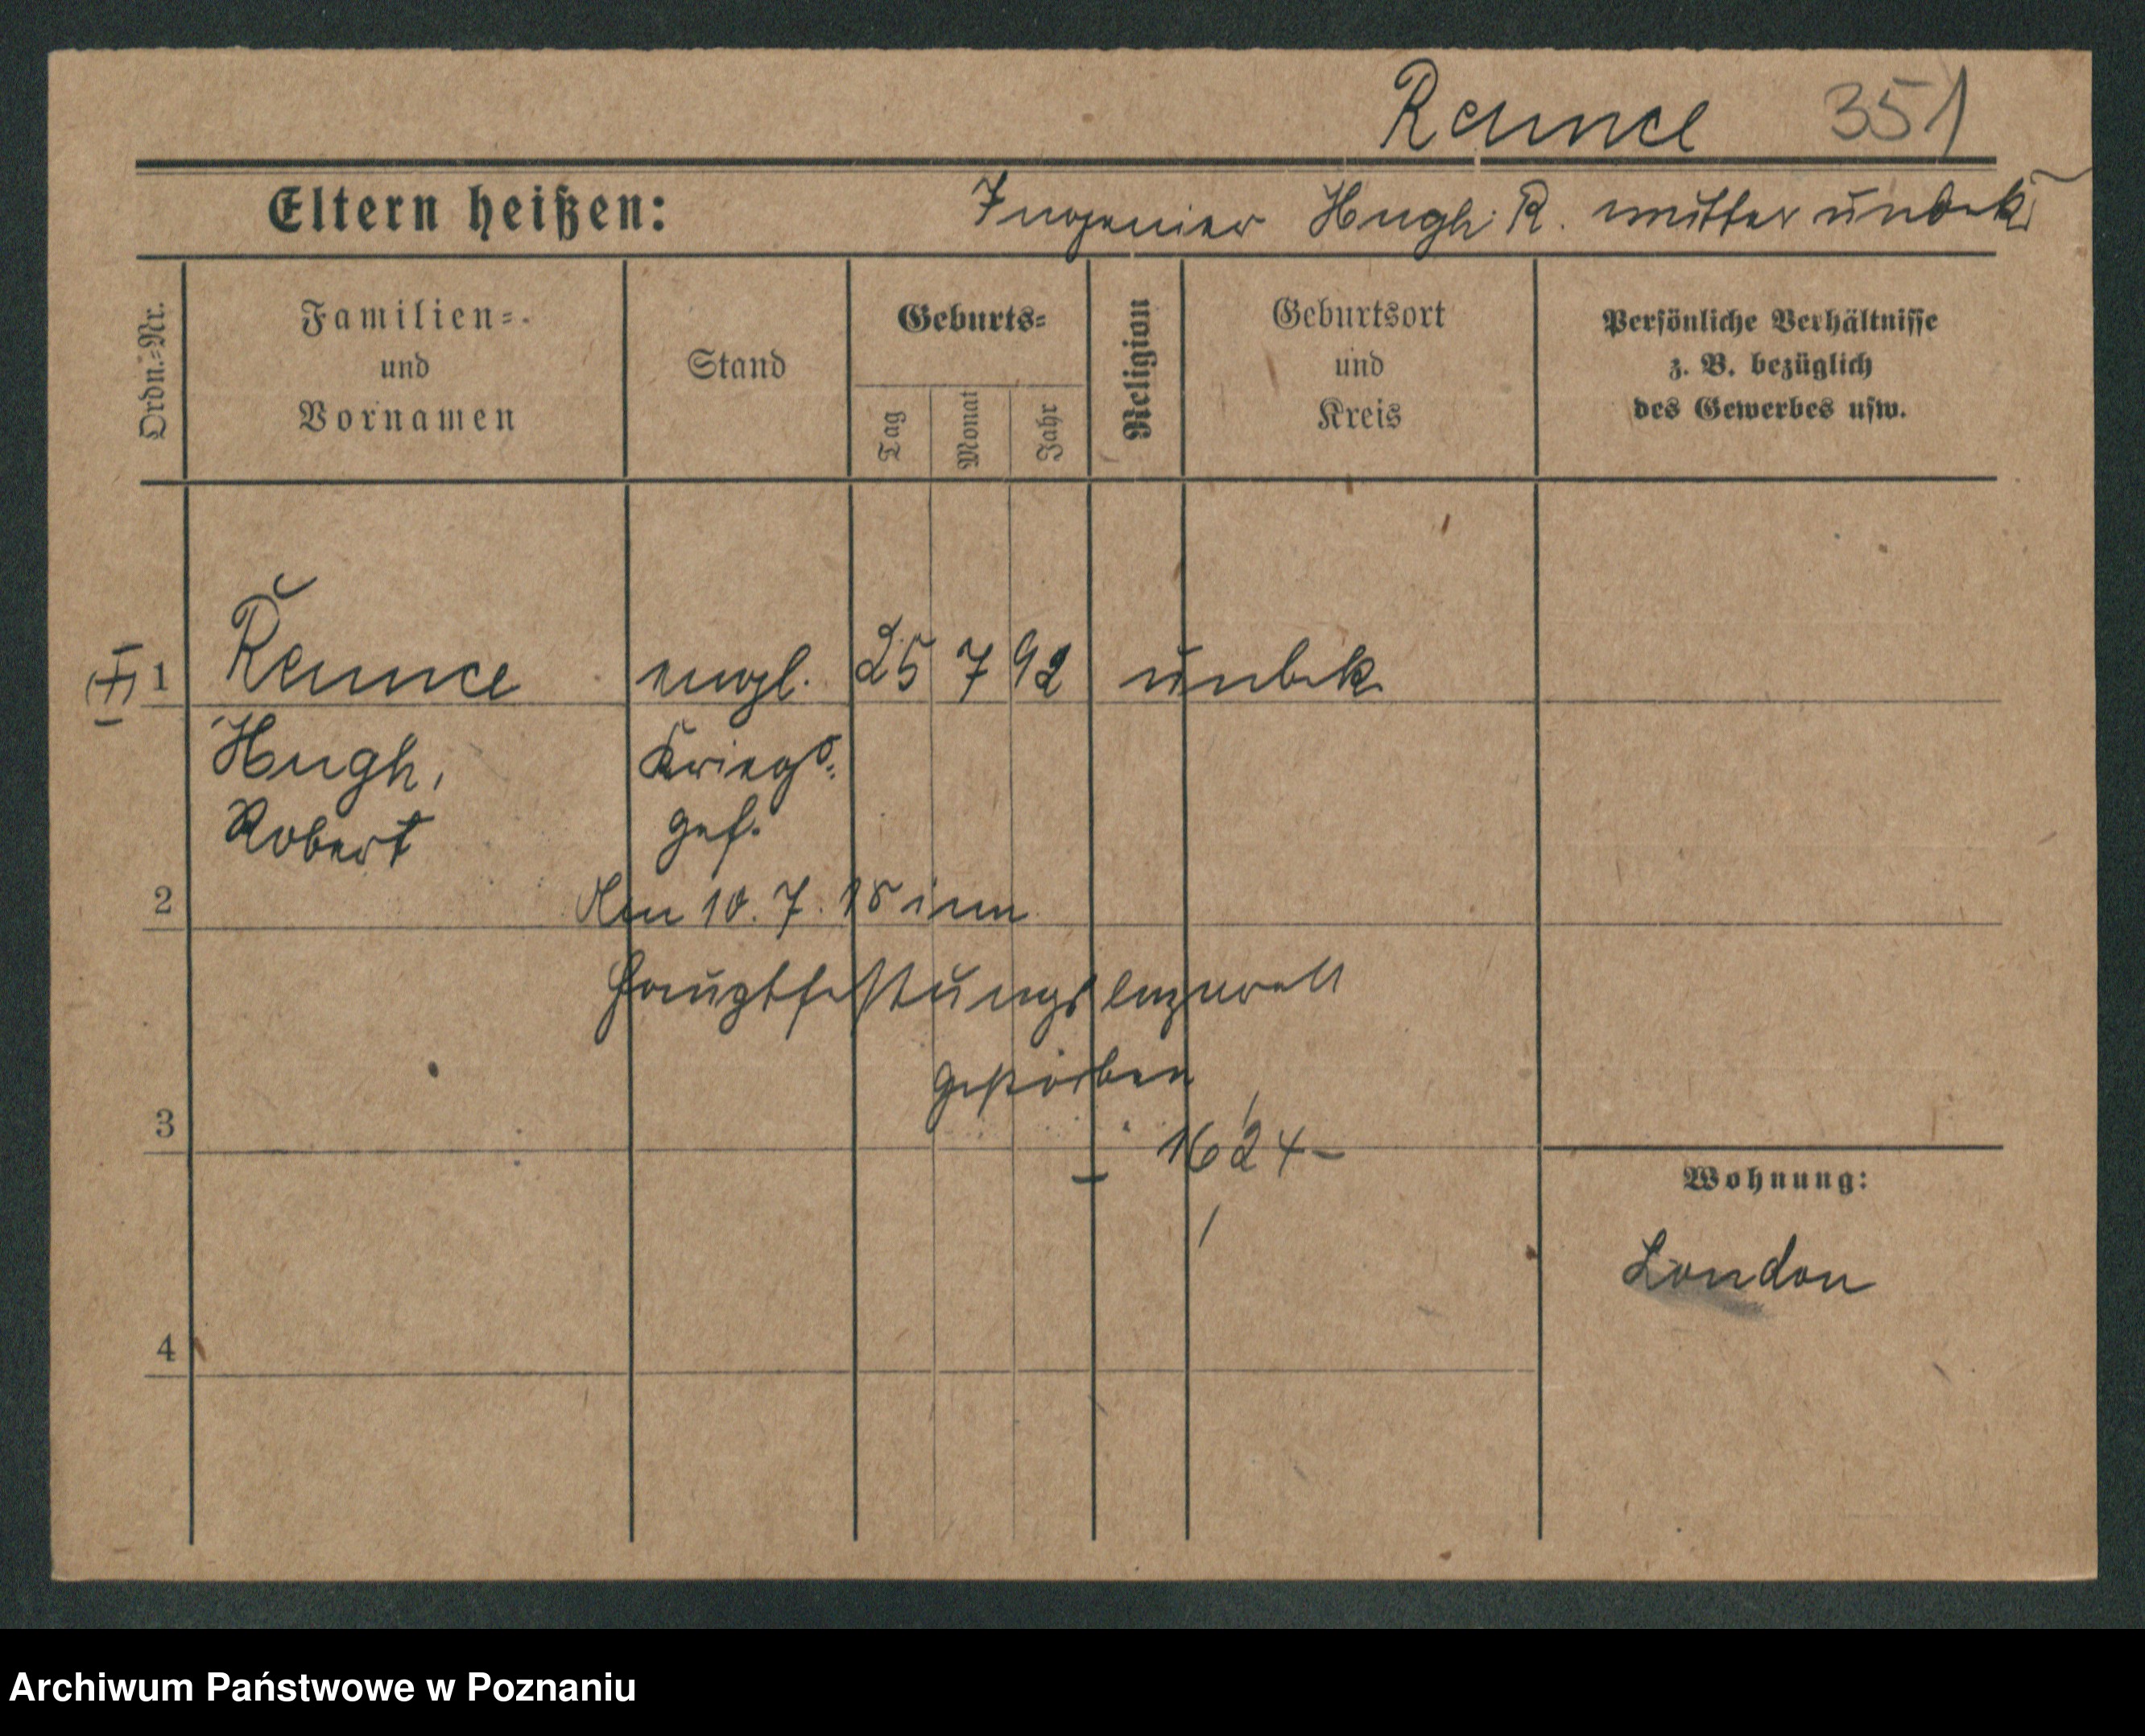 Rennce 351
Eltern heißen: Ingenier Hugh R. mutter unbek.
Ordn.=Nr.
Familien=
und
Vornamen
Stand
Geburts=
Tag
Monat
Jahr
Religion
Geburtsort
und
Kreis
Persönliche Verhältnisse
z. B. bezüglich
des Gewerbes usw.
1 Rennce engl. 25 7 92 unbek.
Hugh, Kriegs=
Robert gef.
2 Am 10. 7. 18 im
Hauptfestungslazarett
gestorben
3 1624
Wohnung:
London
4
Archiwum Państwowe w Poznaniu